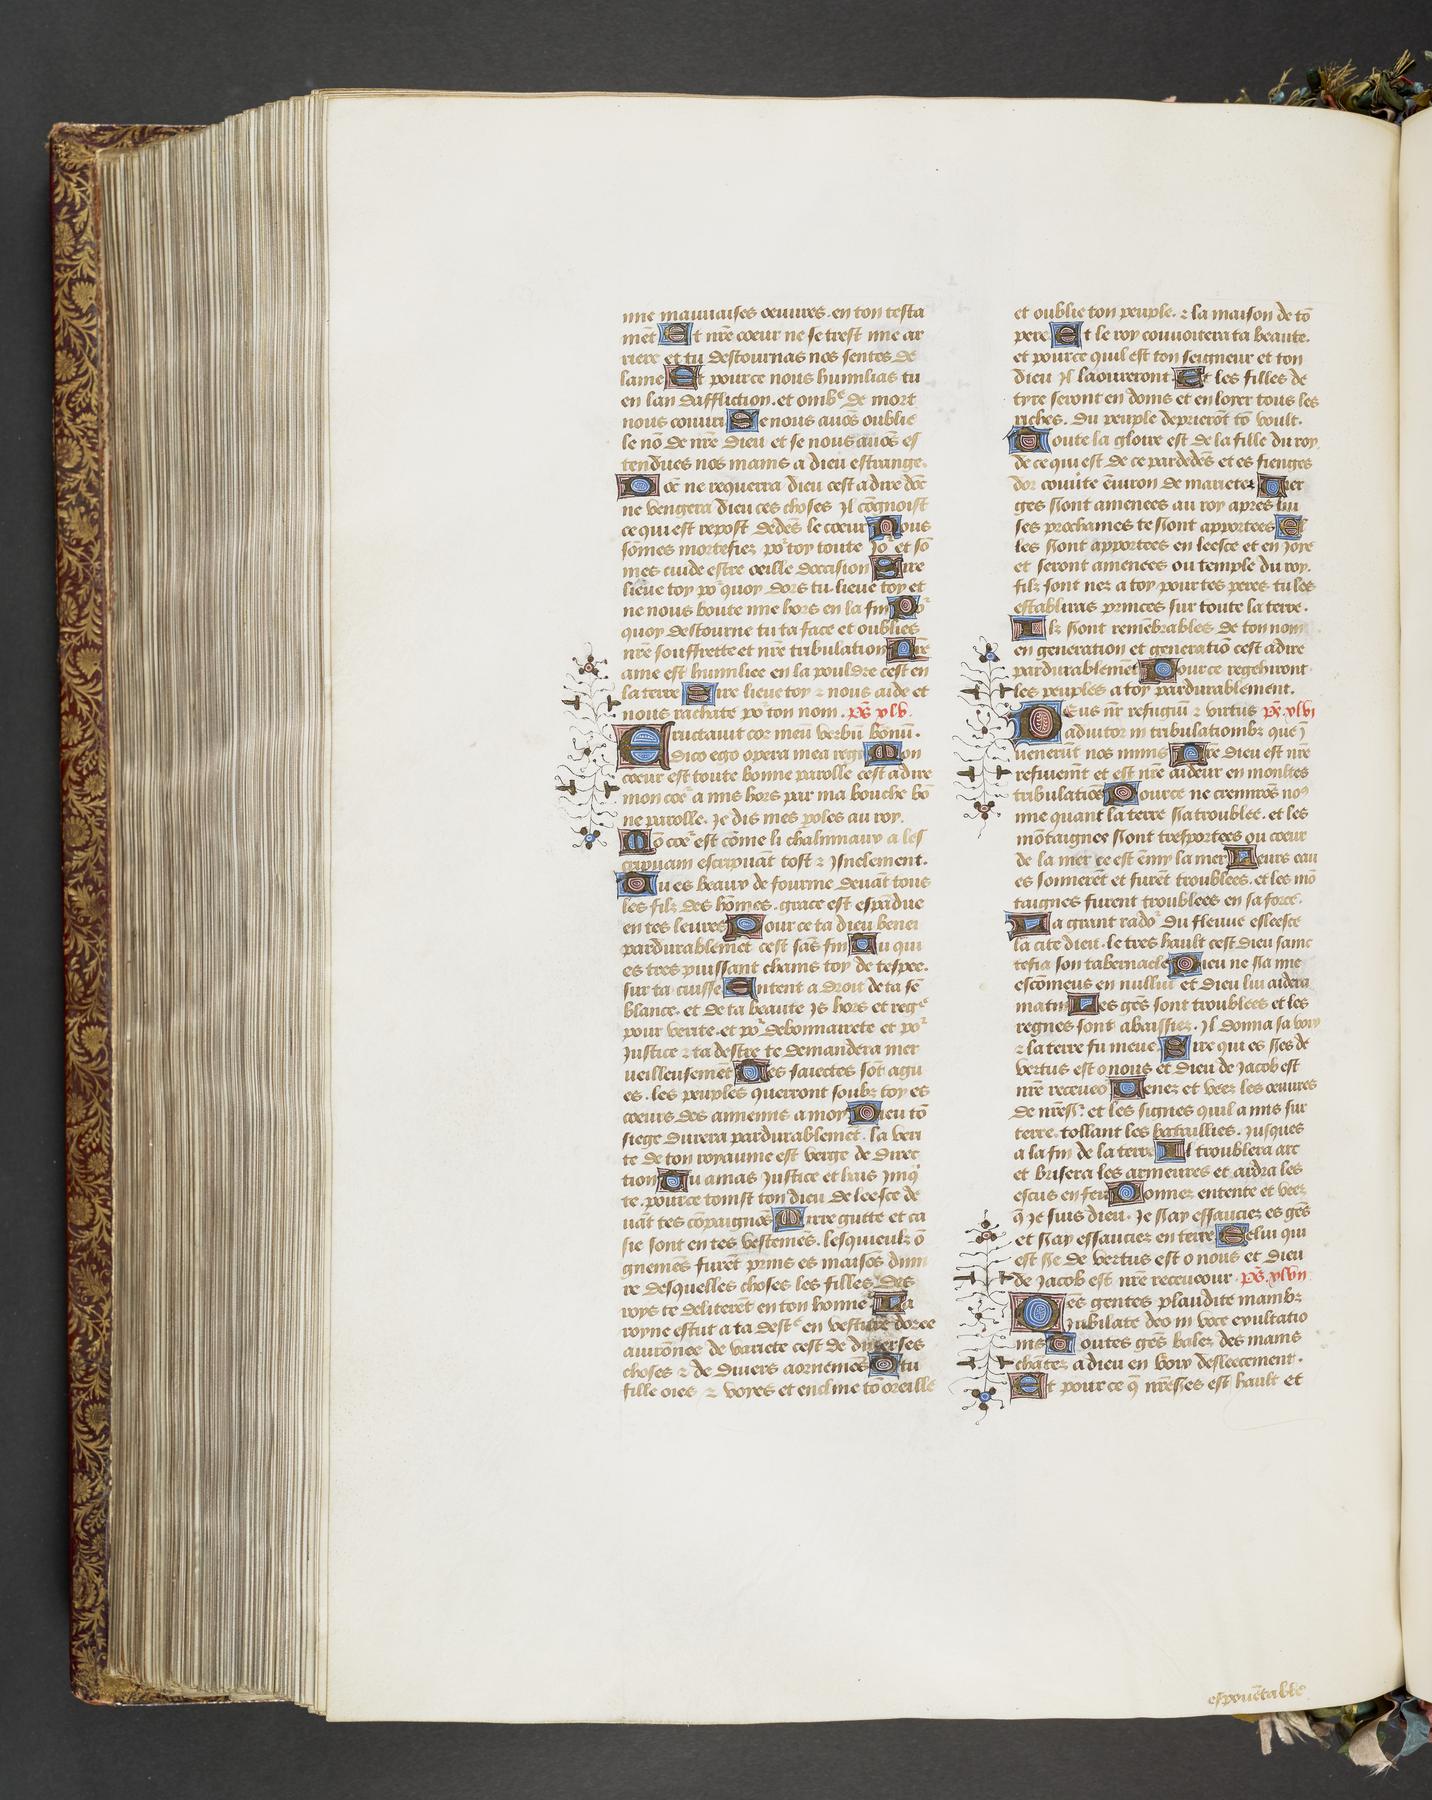 mie mauuaises oeuures. en ton testa
mēt Et nr̄e coeur ne se trest mie ar
riere et tu destournas nos sentes de
lame Et pource nous humilias tu
en lau daffliction. et ombᵉ de mort
nous couuri Se nous auōs oublie
le nō de nr̄e dieu et se nous auōs es
tendues nos mains a dieu estrange.
Dōc ne requerra dieu cest adire dōc
ne vengera dieu ces choses Il cōgnoist
ce qui est repost dedēs le coeur Nous
sōmes mortefiez poʳ toy toute Joʳ et sō
mes cuide estre oeille doccision Sire
lieue toy poʳ quoy dors tu. lieue toy et
ne nous boute mie hors en la fin Poʳ
quoy destourne tu ta face et oublies
nr̄e souffrette et nr̄e tribulation Nr̄e
ame est humiliee en la pouldre cest en
la terre Sire lieue toy ⁊ nous aide et
nous rachate poʳ ton nom. ps̄ xlv.
Eructauit cor meū verbū bonū.
Dico ego opera mea regi Mon
coeur est toute bonne parolle cest adire
mon coeʳ a mis hors par ma bouche bō
ne parolle. Je dis mes poles au roy.
Mō coeʳ est cōme li chalimiaux a les
cripuain escripuāt tost ⁊ Jsnelement.
Tu es beaux de fourme deuāt tous
les filz des hōmes. grace est espādue
en tes leures Pource ta dieu benei
pardurablemēt cest sās fin Tu qui
es tres puissant chains toy de tespee.
sur ta cuisse Entent a droit de ta sē
blance. et de ta beaute Js hors et regᵉ
pour verite. et poʳ debonnairete et poʳ
Justice ⁊ ta destre te demandera mer
ueilleusemēt Tes saiectes sōt agu
es. les peuples querront soubz toy es
coeurs des annemis a moy Dieu tō
siege durera pardurablemēt. la veri
te de ton royaume est verge de direc
tion Tu amas Justice et hais Iniq̄
te. pource toinst ton dieu de leesce de
uāt tes cōpaignōs Mirre gutte et ca
sie sont en tes vestemēs. lesquieulx ō
gnemēs furēt prins es maisōs diuii
re desquelles choses les filles des
roys te deliterēt en ton honne La
royne estut a ta destᵉ en vesture doree
auironnee de variete cest de diuerses
choses ⁊ de diuers aornemēs O tu
fille oies ⁊ voyes et encline tō oreille
et oublie ton peuple. ⁊ la maison de tō
pere Et le roy couuoitera ta beaute.
et pource quil est ton seigneur et ton
dieu Jl laoureront Et les filles de
tyre seront en doms et en loyer tous les
riches. du peuple deprierōt tō voult.
Toute la gloire est de la fille du roy.
de ce qui est de ce par dedēs et es fienges
dor couūte ēuiron de marietez Vier
ges sſont amenees au roy apres lui
ses prochaines te sſont apportees El
les sſont apportees en leesce et en Joye
et seront amenees ou temple du roy.
filz sont nez a toy pour tes peres tu les
establiras princes sur toute la terre.
Ilz sſont remēbrables de ton nom
en generation et generatiō cest adire
pardurablemēt Pource regehiront
les peuples a toy pardurablement.
Deus nr̄ refugiū ⁊ virtus ps̄. xlvi
adiutor in tribulationibz que ī
uenerūt nos nimis Nr̄e dieu est nr̄e
refuiemt et est nr̄e aideur en moultes
tribulatiōs Pource ne cremirōs noˢ
mie quant la terre sſa troublee. et les
mōtaignes sſont tresportees ou coeur
de la mer ce est ēmy la mer Leurs eau
es sonnerēt et furēt troublees. et les mō
taignes furent troublees en sa force.
La grant radoʳ du fleuue esleesce
la cite dieu. le tres hault cest dieu sainc
tefia son tabernacle Dieu ne sſa mie
escōmeus en nullui et dieu lui aidera
matin Les gēs sont troublees et les
regnes sont abaissiez. Jl donna sa voix
⁊ la terre fu meue Sire qui es sſes de
vertus est o nous et dieu de Jacob est
nr̄e receueo Venez et veez les oeuures
de nr̄essʳ. et les signes quil a mis sur
terre. tollant les bataillies. Jusques
a la fin de la terre Il troublera arc
et brisera les armeures et ardra les
escus en feu Donnez entente et veez
q̄ Je suis dieu. Je sſay essauciez es gēs
et sſay essauciez en terre Celui qui
est sſe de vertus est o nous et dieu
de Jacob est nr̄e receueour. ps̄. xlvii
Oes gentes plaudite manibz
Jubilate deo in voce exultatio
nis Toutes gēs balez des mains
chātez a dieu en voix desleecement.
Et pource q̄ nr̄esſes est hault et
espouētable